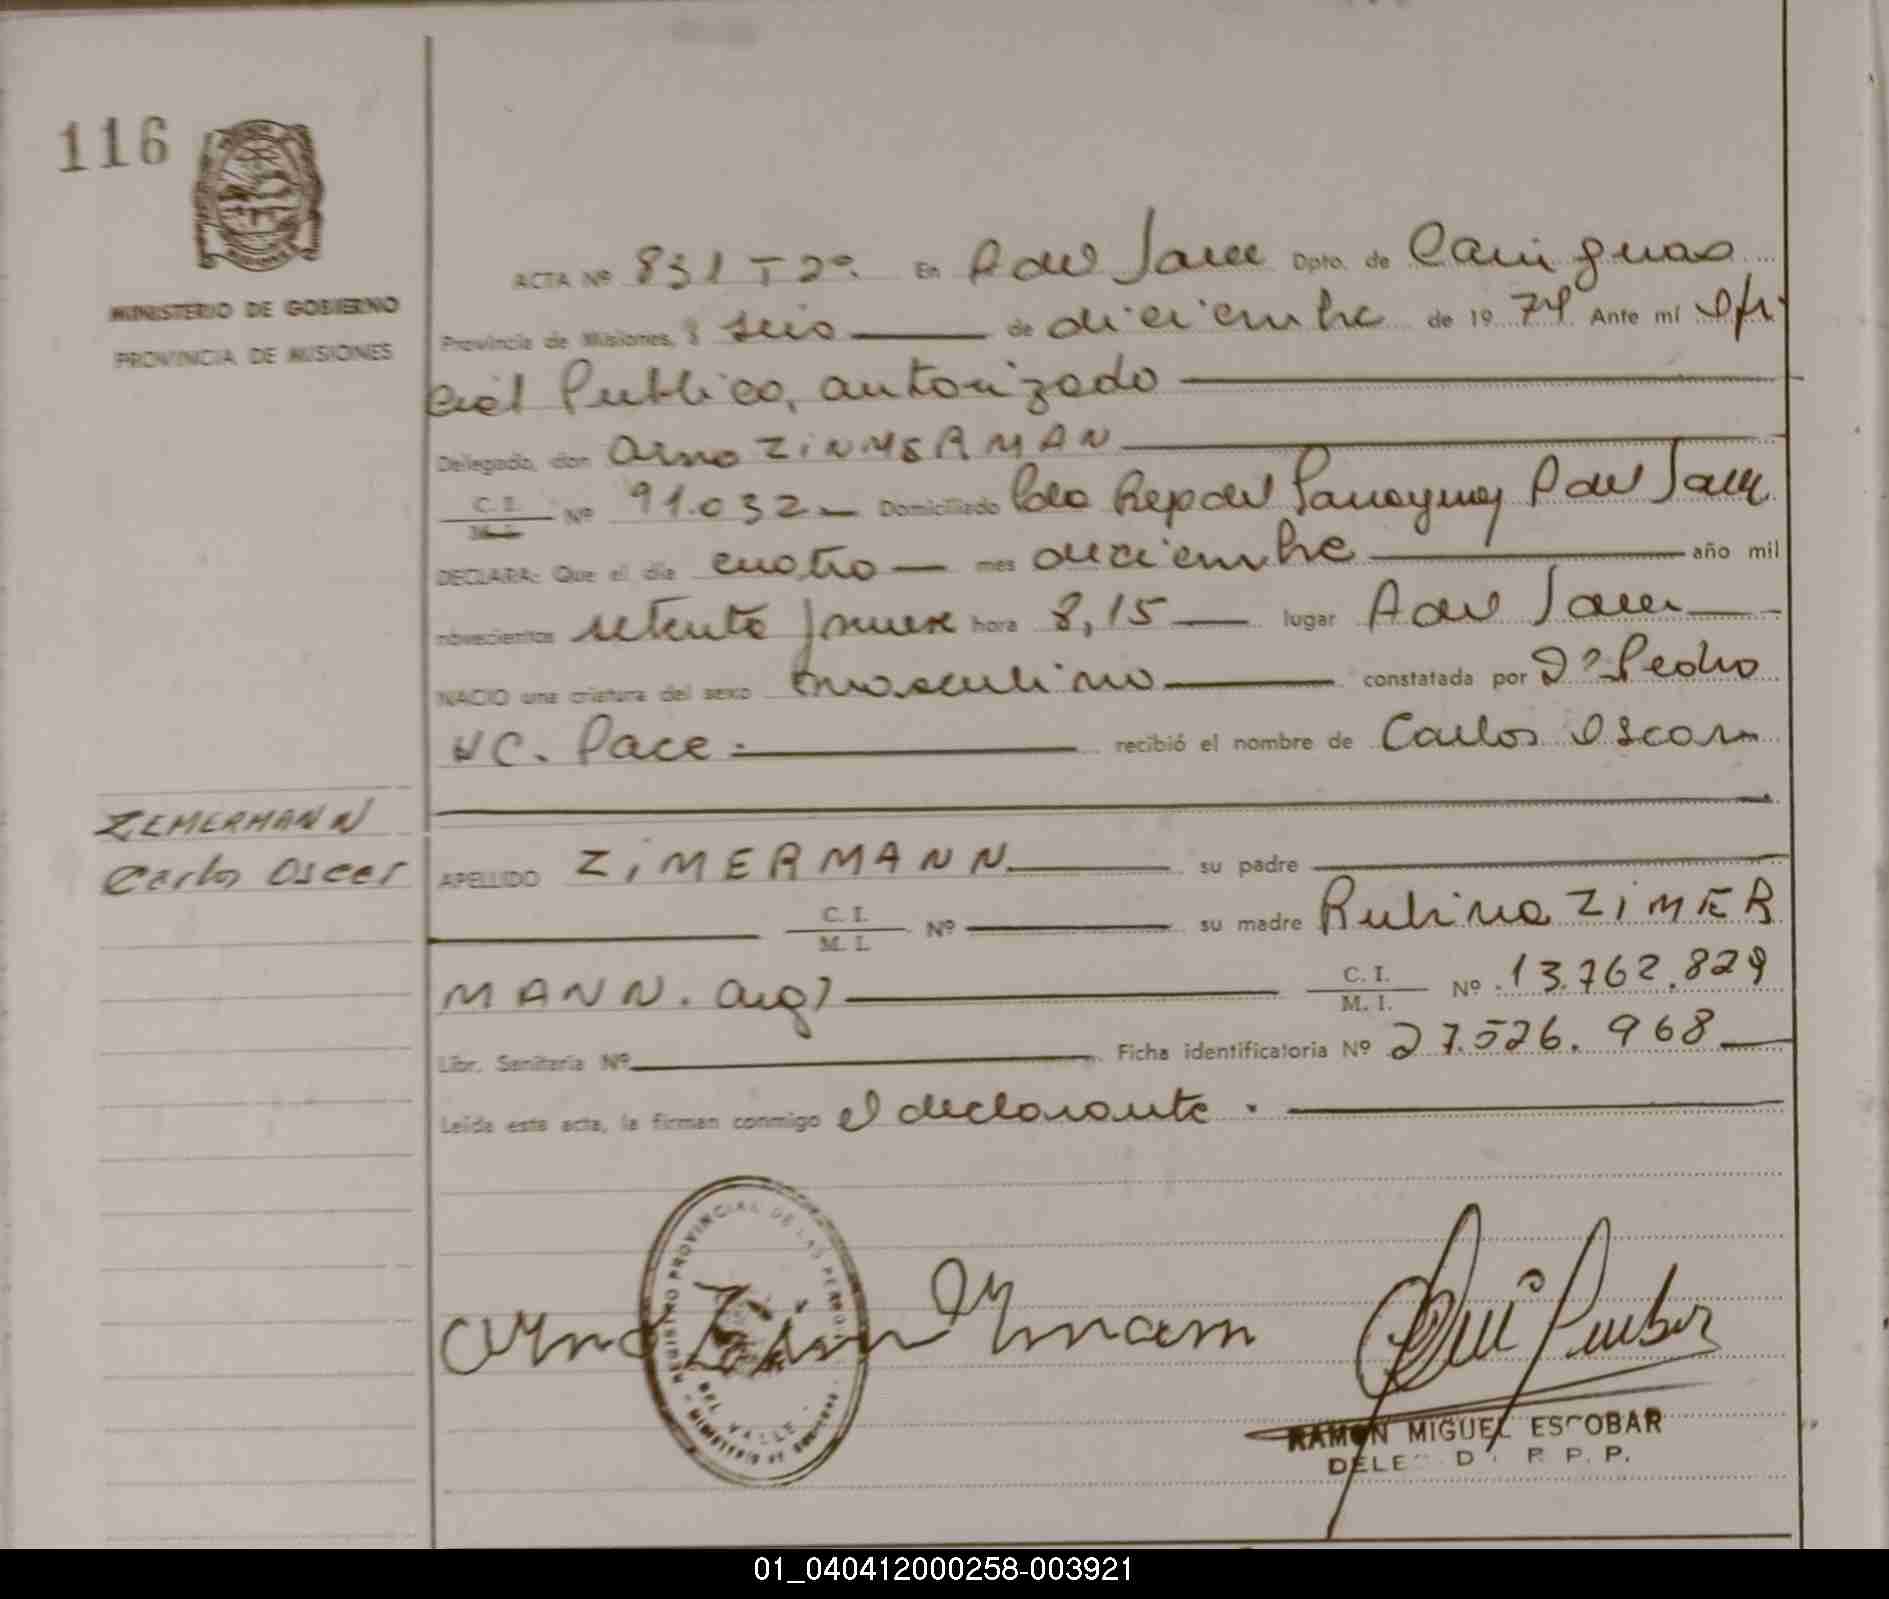 116
MINISTERIO DE GOBIERNO
PROVINCIA DE MISIONES
ACTA Nº 831 T 2º. En A del Valle Dpto. de Cainguas
Provincia de Misiones, a seis de diciembre de 1979 Ante mí Ofi
cial Publico, autorizado
Delegado, don Arno ZiNMERMAN
C. I. Nº 91.032 Domiciliado Pdo Rep del Paraguay A del Valle
M. I.
DECLARA: Que el día cuatro mes diciembre año mil
novecientos setenta y nueve hora 8,15 lugar A del Valle
NACIO una criatura del sexo masculino constatada por Dº Pedro
HC. Pace. recibió el nombre de Carlos Oscar
ZEMERMANN
Carlos Oscar
APELLIDO ZiMERMANN su padre
C. I.
M. I. Nº su madre Rubina ZiMER
MANN. arg) C. I.
M. I. Nº 13.762.829
Libr. Sanitaria Nº Ficha identificatoria Nº 27.526.968
Leída esta acta, la firman conmigo el declarante.
REGISTRO PROVINCIAL DE LAS PERSONAS
DEL VALLE
MINISTERIO DE GOBIERNO
RAMON MIGUEL ESCOBAR
01_040412000258-003921